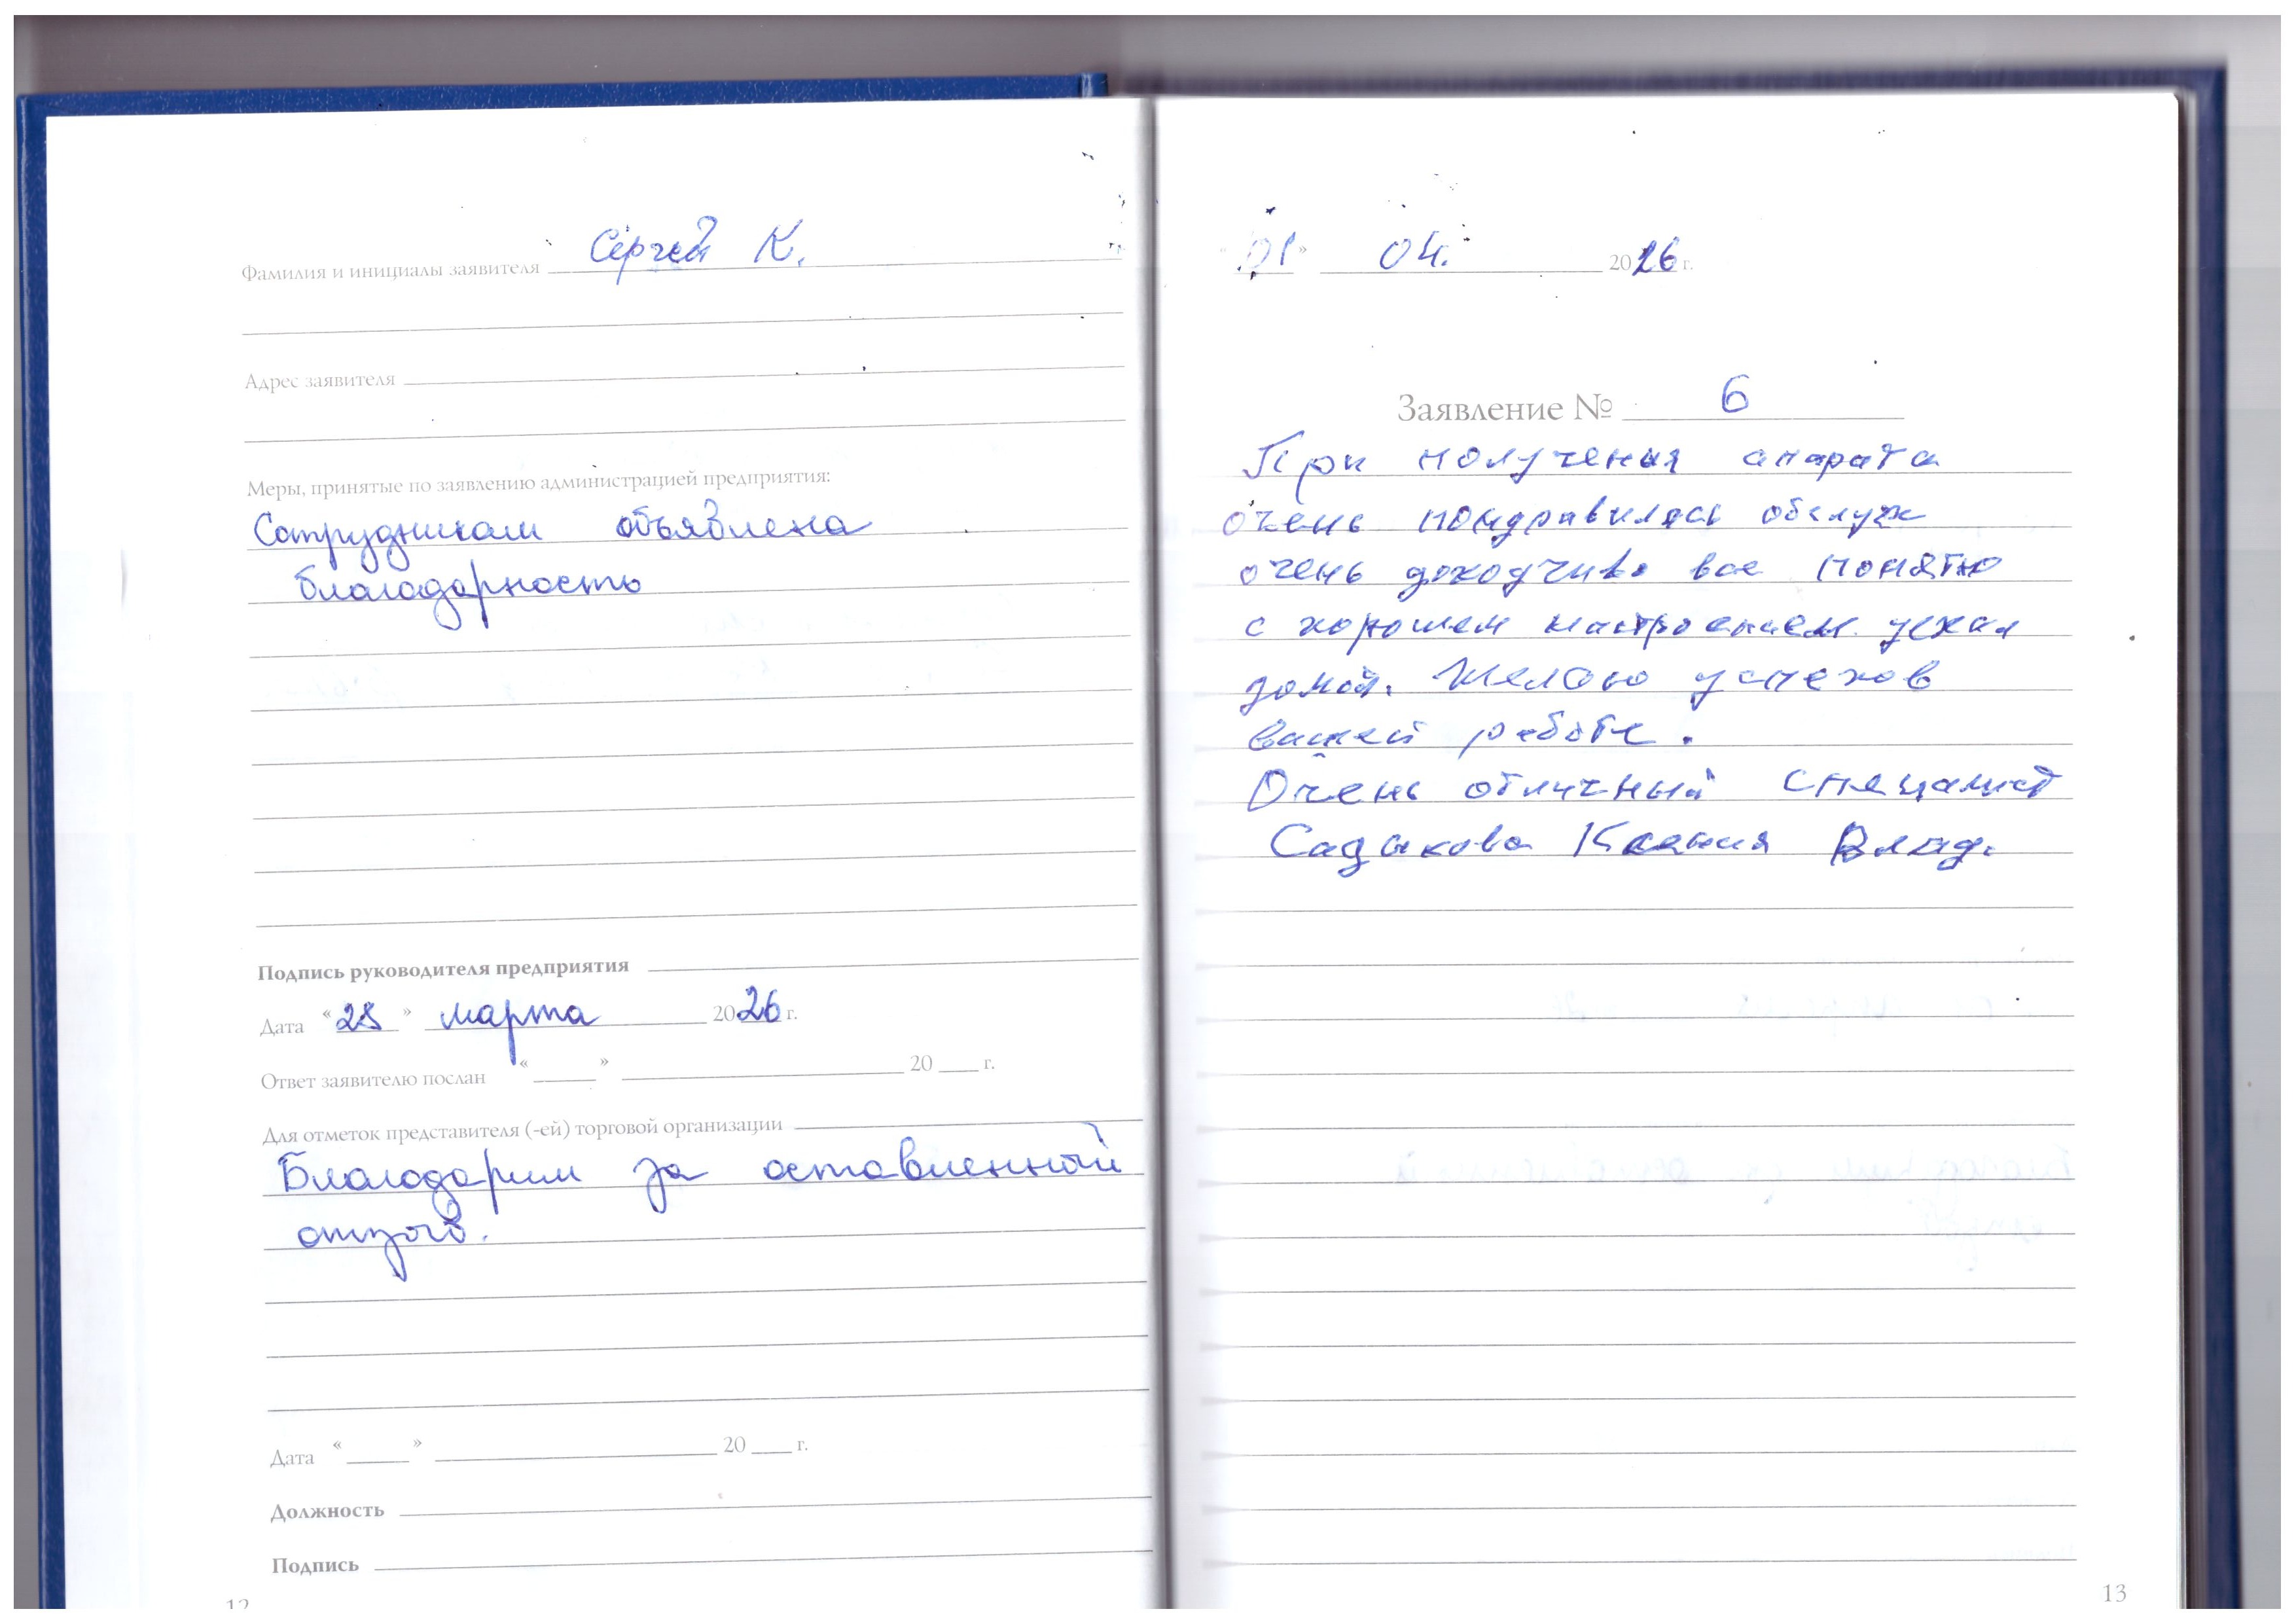 Фамилия и инициалы заявителя Сергей К.
Адрес заявителя
Меры, принятые по заявлению администрацией предприятия:
Сотрудникам объявлена
благодарность
Подпись руководителя предприятия
Дата « 28 » марта 2026 г.
Ответ заявителю послан « » 20 г.
Для отметок представителя (-ей) торговой организации
Благодарим за оставленный
отзыв.
Дата « » 20 г.
Должность
Подпись
12
« 01 » 04. 2026 г.
Заявление № 6
При получения апарата
очень пондравилась обслуж
очень доходчиво все понятно
с хорошем настроением уехал
домой. Желаю успехов
вашей работе.
Очень отличный специалист
Садыкова Ксения Влад.
13